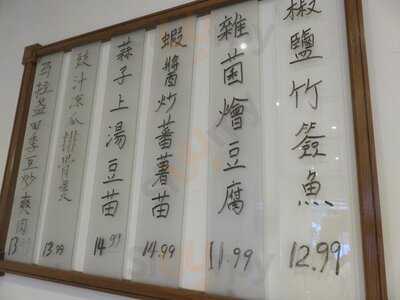 椒鹽竹簽魚 12.99
雜菌燴豆腐 11.99
蝦醬炒蕃薯苗 14.99
蒜子上湯豆苗 14.99
豉汁凉瓜排骨煲 13.99
馬拉盞四季豆炒爽肉 13